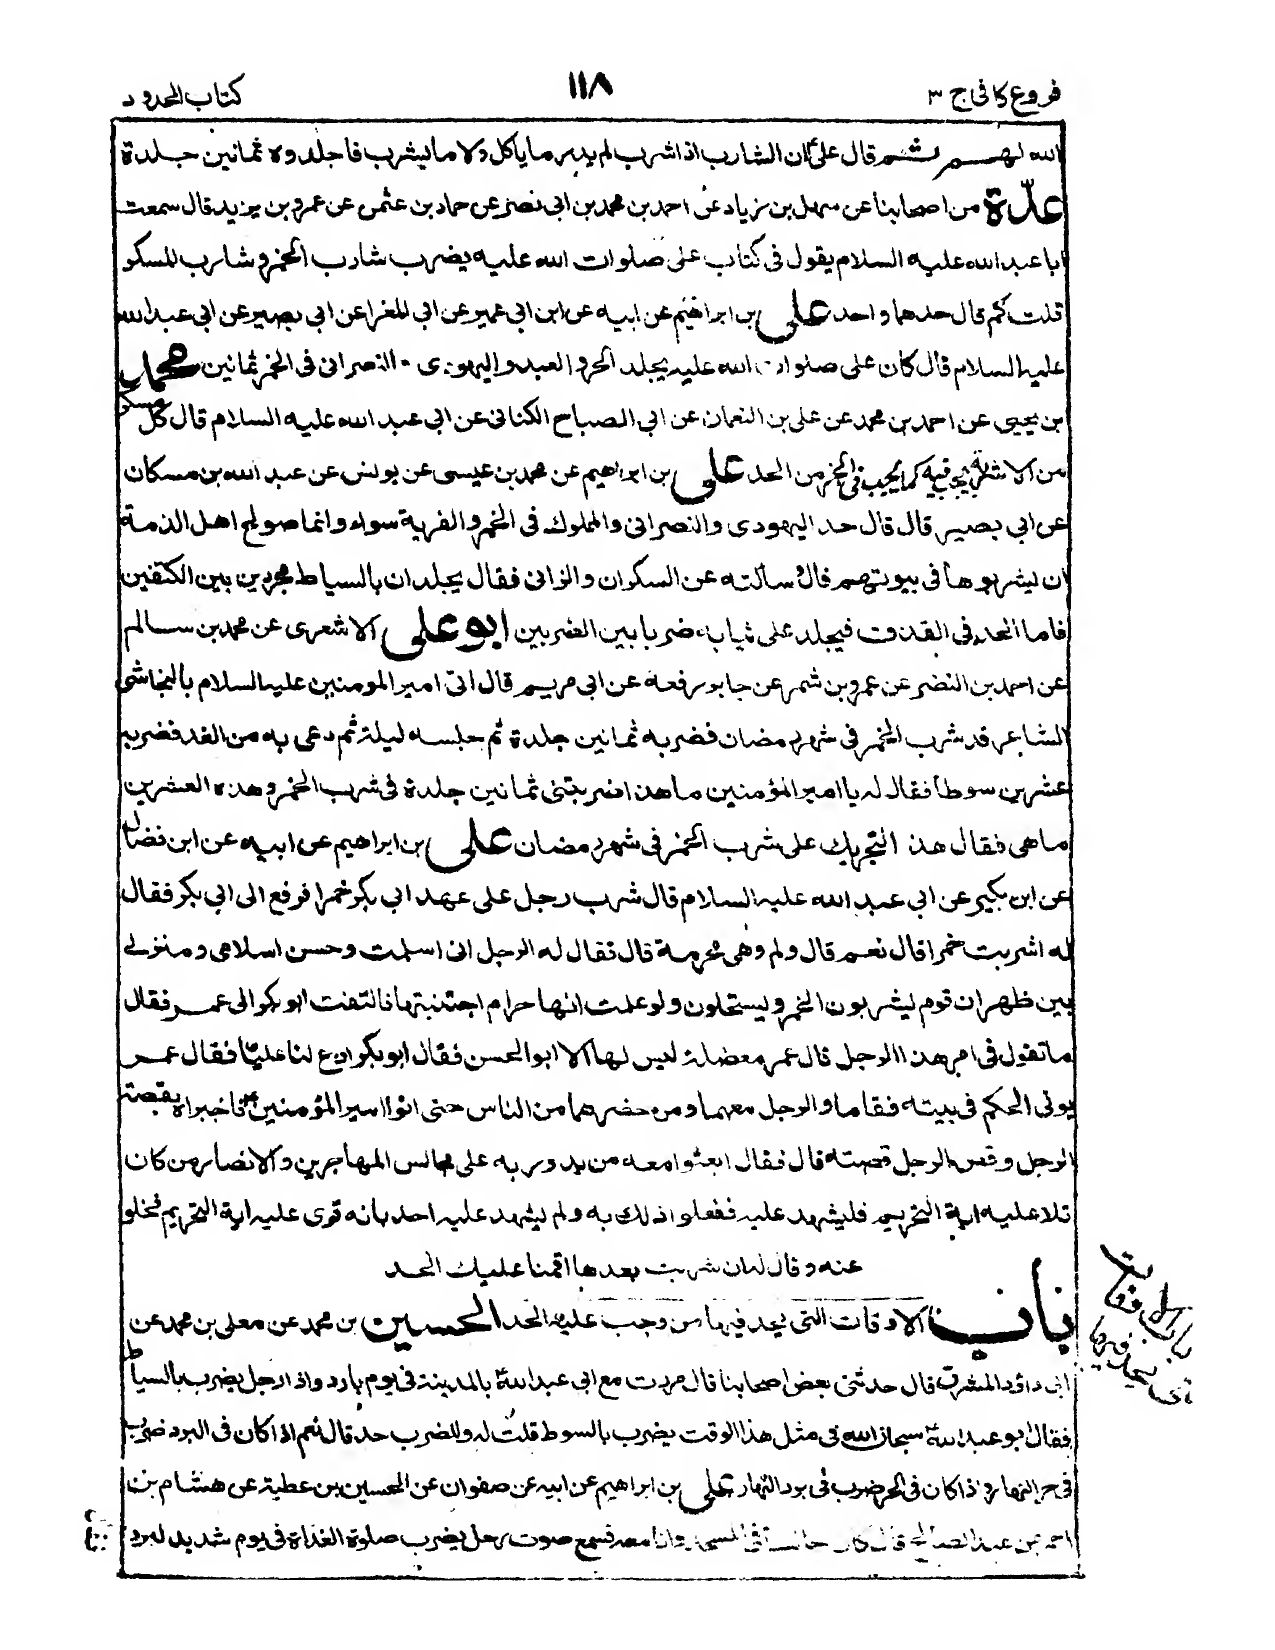 فروع كافى ج ٣
١١٨
كتاب الحدود
الله لهم ثم قال على ان الشارب اذا شرب لم يدر ما ياكل ولا ما يشرب فاجلدوه ثمانين جلدة
عدّة من اصحابنا عن سهل بن زياد عن احمد بن محمد بن ابى نصر عن حماد بن عثمن عن عمرو بن يزيد قال سمعت
ابا عبد الله عليه السلام يقول فى كتاب على صلوات الله عليه يضرب شارب الخمر و شارب المسكر
قلت كم قال حدهما واحد على بن ابراهيم عن ابيه عن ابن ابى عمير عن ابى المغرا عن ابى بصير عن ابى عبد الله
عليه السلام قال كان على صلوات الله عليه يجلد الحر و العبد و اليهودى و النصرانى فى الخمر ثمانين محمد
بن يحيى عن احمد بن محمد عن على بن النعمان عن ابى الصباح الكنانى عن ابى عبد الله عليه السلام قال كل مسكر
من الاشربة يجب فيه كما يجب فى الخمر من الحد على بن ابراهيم عن محمد بن عيسى عن يونس عن عبد الله بن مسكان
عن ابى بصير قال قال حد اليهودى والنصرانى والمملوك فى الخمر والفرية سواء وانما صولح اهل الذمة
ان يشربوها فى بيوتهم قال و سألته عن السكران والزانى فقال يجلدان بالسياط مجردين بين الكتفين
فاما الحد فى القذف فيجلد على ثيابه ضربا بين الضربين ابو على الاشعرى عن محمد بن سالم
عن احمد بن النضر عن عمرو بن شمر عن جابر رفعه عن ابى مريم قال اتى امير المومنين عليه السلام بالنجاشى
الشاعر قد شرب الخمر فى شهر رمضان فضربه ثمانين جلدة ثم حبسه ليلة ثم دعى به من الغد فضربه
عشرين سوطا فقال له يا امير المؤمنين ما هذا ضربتنى ثمانين جلدة فى شرب الخمر و هذه العشرين
ما هى فقال هذا لتجريك على شرب الخمر فى شهر رمضان على بن ابراهيم عن ابيه عن ابن فضال
عن ابن بكير عن ابى عبد الله عليه السلام قال شرب رجل على عهد ابى بكر خمرا فرفع الى ابى بكر فقال
له اشربت خمرا قال نعم قال ولم وهى محرمة قال فقال له الرجل انى اسلمت وحسن اسلامى و منزلى
بين ظهران قوم يشربون الخمر و يستحلون ولو علمت انها حرام اجتنبتها فالتفت ابو بكر الى عمر فقال
ما تقول فى امر هذا الرجل قال عمر معضلة ليس لها الا ابو الحسن فقال ابو بكر ادع لنا عليا فقال عمر
يوتى الحكم فى بيته فقاما و الرجل معهما و من حضرهما من الناس حتى اتوا امير المؤمنين ع فاخبراه بقصة
الرجل و قص الرجل قصته قال فقال ابعثوا معه من يدور به على مجالس المهاجرين والانصار من كان
تلا عليه اية التحريم فليشهد عليه ففعلوا ذلك به ولم يشهد عليه احد بانه قرى عليه اية التحريم فخلوا
عنه و قال له ان شربت بعدها اقمنا عليك الحد
باب الاوقات التى يحد فيها من وجب عليه الحد الحسين بن محمد عن معلى بن محمد عن
ابى داؤد المسترق قال حدثنى بعض اصحابنا قال مررت مع ابى عبد الله ع بالمدينة فى يوم بارد واذا رجل يضرب بالسياط
فقال ابو عبد الله ع سبحان الله فى مثل هذا الوقت يضرب بالسوط قلت له وللضرب حد قال نعم اذا كان فى البرد ضرب
فى حر النهار و اذا كان فى الحر ضرب فى برد النهار على بن ابراهيم عن ابيه عن صفوان عن الحسين بن عطية عن هشام بن
احمر عن عبد الصالح قال كان جالسا فى المسجد وانا معه فسمع صوت رجل يضرب صلوة الغداة فى يوم شديد البرد
باب الاوقات
يحد فيها